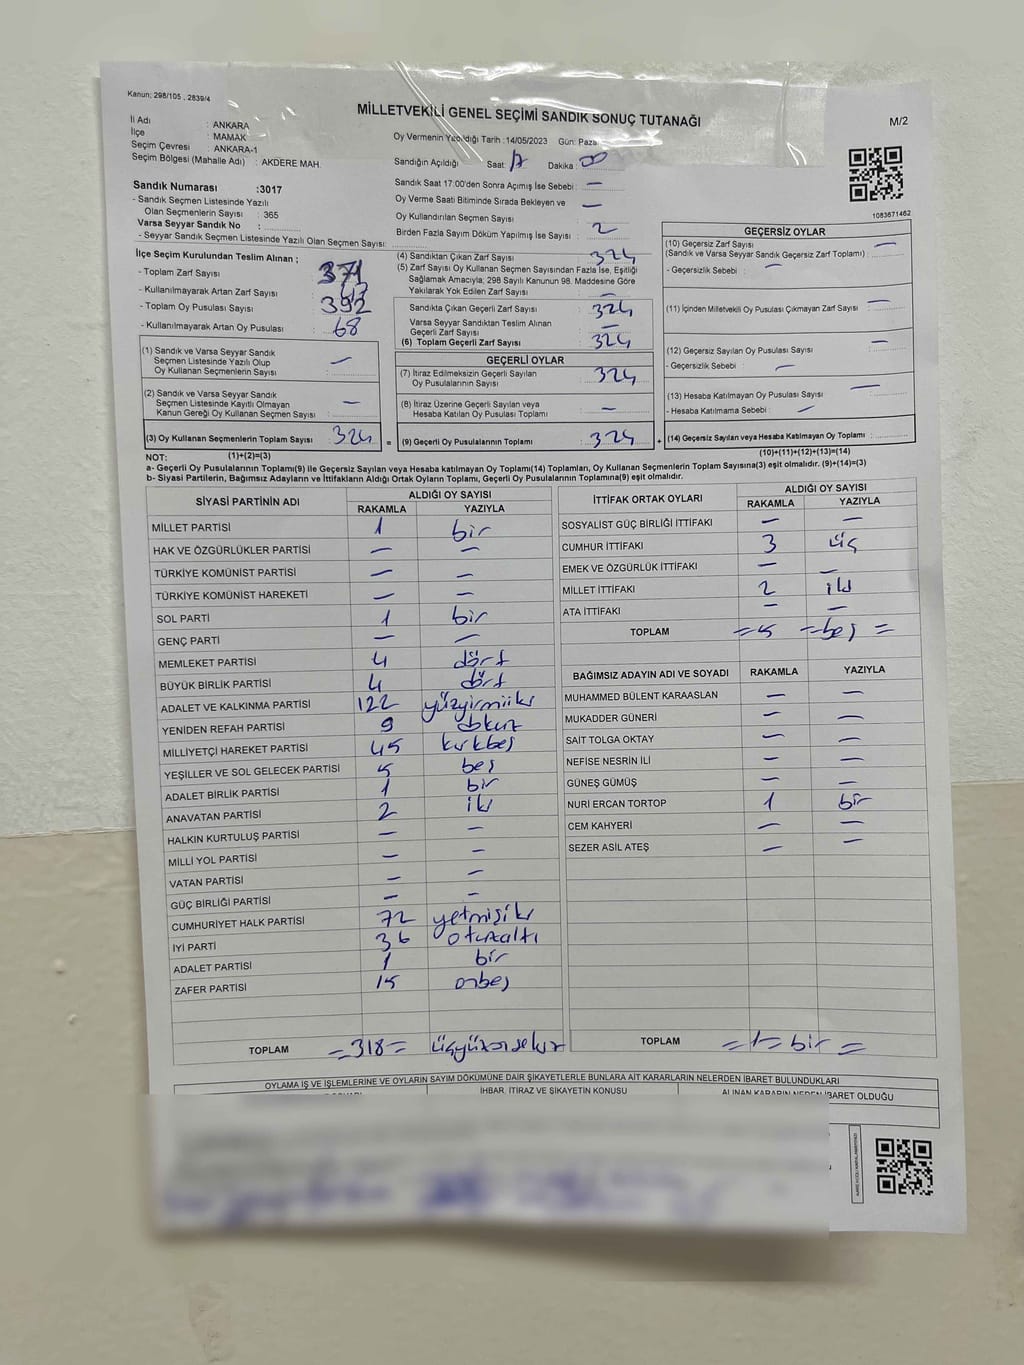 Kanun; 298/105 , 2839/4
MİLLETVEKİLİ GENEL SEÇİMİ SANDIK SONUÇ TUTANAĞI
M/2
İl Adı : ANKARA
İlçe : MAMAK
Seçim Çevresi : ANKARA-1
Seçim Bölgesi (Mahalle Adı) : AKDERE MAH.
Oy Vermenin Yapıldığı Tarih :14/05/2023 Gün: Paza
Sandığın Açıldığı Saat: 17 Dakika: 00
Sandık Numarası :3017
- Sandık Seçmen Listesinde Yazılı
Olan Seçmenlerin Sayısı : 365
Varsa Seyyar Sandık No :
- Seyyar Sandık Seçmen Listesinde Yazılı Olan Seçmen Sayısı:
Sandık Saat 17:00'den Sonra Açımış İse Sebebi : —
Oy Verme Saati Bitiminde Sırada Bekleyen ve
Oy Kullandırılan Seçmen Sayısı : —
Birden Fazla Sayım Döküm Yapılmış İse Sayısı : 2
1083671462
İlçe Seçim Kurulundan Teslim Alınan ;
- Toplam Zarf Sayısı : 371
- Kullanılmayarak Artan Zarf Sayısı :
- Toplam Oy Pusulası Sayısı : 392
- Kullanılmayarak Artan Oy Pusulası : 68
(1) Sandık ve Varsa Seyyar Sandık
Seçmen Listesinde Yazılı Olup
Oy Kullanan Seçmenlerin Sayısı : —
(2) Sandık ve Varsa Seyyar Sandık
Seçmen Listesinde Kayıtlı Olmayan
Kanun Gereği Oy Kullanan Seçmen Sayısı : —
(3) Oy Kullanan Seçmenlerin Toplam Sayısı : 324
(1)+(2)=(3)
(4) Sandıktan Çıkan Zarf Sayısı : 324
(5) Zarf Sayısı Oy Kullanan Seçmen Sayısından Fazla İse, Eşitliği
Sağlamak Amacıyla; 298 Sayılı Kanunun 98. Maddesine Göre
Yakılarak Yok Edilen Zarf Sayısı : —
Sandıkta Çıkan Geçerli Zarf Sayısı : 324
Varsa Seyyar Sandıktan Teslim Alınan
Geçerli Zarf Sayısı : —
(6) Toplam Geçerli Zarf Sayısı : 324
GEÇERLİ OYLAR
(7) İtiraz Edilmeksizin Geçerli Sayılan
Oy Pusulalarının Sayısı : 324
(8) İtiraz Üzerine Geçerli Sayılan veya
Hesaba Katılan Oy Pusulası Toplamı : —
= (9) Geçerli Oy Pusulalarının Toplamı : 324
GEÇERSİZ OYLAR
(10) Geçersiz Zarf Sayısı —
(Sandık ve Varsa Seyyar Sandık Geçersiz Zarf Toplamı) :
- Geçersizlik Sebebi : —
(11) İçinden Milletvekili Oy Pusulası Çıkmayan Zarf Sayısı : —
(12) Geçersiz Sayılan Oy Pusulası Sayısı : —
- Geçersizlik Sebebi : —
(13) Hesaba Katılmayan Oy Pusulası Sayısı : —
- Hesaba Katılmama Sebebi : —
+ (14) Geçersiz Sayılan veya Hesaba Katılmayan Oy Toplamı :
(10)+(11)+(12)+(13)=(14)
NOT:
a- Geçerli Oy Pusulalarının Toplamı(9) ile Geçersiz Sayılan veya Hesaba katılmayan Oy Toplamı(14) Toplamları, Oy Kullanan Seçmenlerin Toplam Sayısına(3) eşit olmalıdır. (9)+(14)=(3)
b- Siyasi Partilerin, Bağımsız Adayların ve İttifakların Aldığı Ortak Oyların Toplamı, Geçerli Oy Pusulalarının Toplamına(9) eşit olmalıdır.
SİYASİ PARTİNİN ADI ALDIĞI OY SAYISI
RAKAMLA YAZIYLA
MİLLET PARTİSİ 1 bir
HAK VE ÖZGÜRLÜKLER PARTİSİ — —
TÜRKİYE KOMÜNİST PARTİSİ — —
TÜRKİYE KOMÜNİST HAREKETİ — —
SOL PARTİ 1 bir
GENÇ PARTİ — —
MEMLEKET PARTİSİ 4 dört
BÜYÜK BİRLİK PARTİSİ 4 dört
ADALET VE KALKINMA PARTİSİ 122 yüzyirmiiki
YENİDEN REFAH PARTİSİ 9 dokuz
MİLLİYETÇİ HAREKET PARTİSİ 45 kırkbeş
YEŞİLLER VE SOL GELECEK PARTİSİ 5 beş
ADALET BİRLİK PARTİSİ 1 bir
ANAVATAN PARTİSİ 2 iki
HALKIN KURTULUŞ PARTİSİ — —
MİLLİ YOL PARTİSİ — —
VATAN PARTİSİ — —
GÜÇ BİRLİĞİ PARTİSİ — —
CUMHURİYET HALK PARTİSİ 72 yetmişiki
İYİ PARTİ 36 otuzaltı
ADALET PARTİSİ 1 bir
ZAFER PARTİSİ 15 onbeş
TOPLAM =318= üçyüzonsekiz
İTTİFAK ORTAK OYLARI ALDIĞI OY SAYISI
RAKAMLA YAZIYLA
SOSYALİST GÜÇ BİRLİĞİ İTTİFAKI — —
CUMHUR İTTİFAKI 3 üç
EMEK VE ÖZGÜRLÜK İTTİFAKI — —
MİLLET İTTİFAKI 2 iki
ATA İTTİFAKI — —
TOPLAM =5 =beş =
BAĞIMSIZ ADAYIN ADI VE SOYADI RAKAMLA YAZIYLA
MUHAMMED BÜLENT KARAASLAN — —
MUKADDER GÜNERİ — —
SAİT TOLGA OKTAY — —
NEFİSE NESRİN İLİ — —
GÜNEŞ GÜMÜŞ — —
NURİ ERCAN TORTOP 1 bir
CEM KAHYERİ — —
SEZER ASİL ATEŞ — —
TOPLAM =1= bir =
OYLAMA İŞ VE İŞLEMLERİNE VE OYLARIN SAYIM DÖKÜMÜNE DAİR ŞİKAYETLERLE BUNLARA AİT KARARLARIN NELERDEN İBARET BULUNDUKLARI
İHBAR, İTİRAZ VE ŞİKAYETİN KONUSU
ALINAN KARARIN NEDEN İBARET OLDUĞU